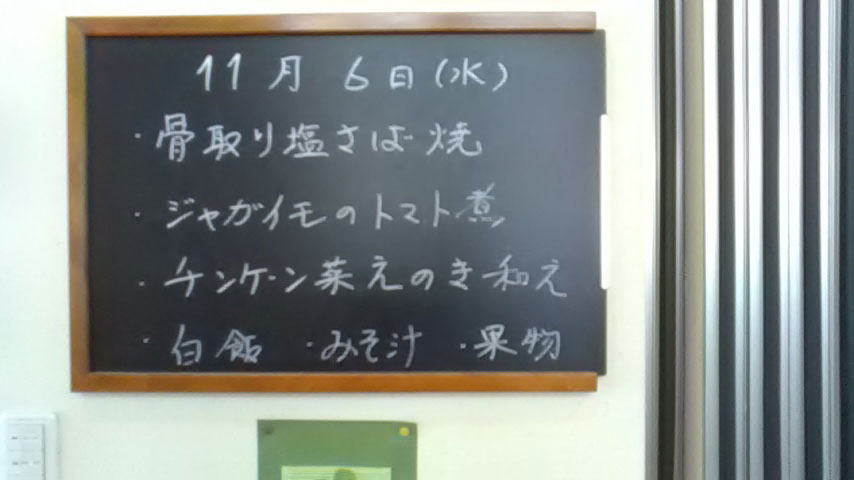 11月 6日(水)
・骨取り塩さば焼
・ジャガイモのトマト煮
・チンゲーン菜えのき和え
・白飯 ・みそ汁 ・果物